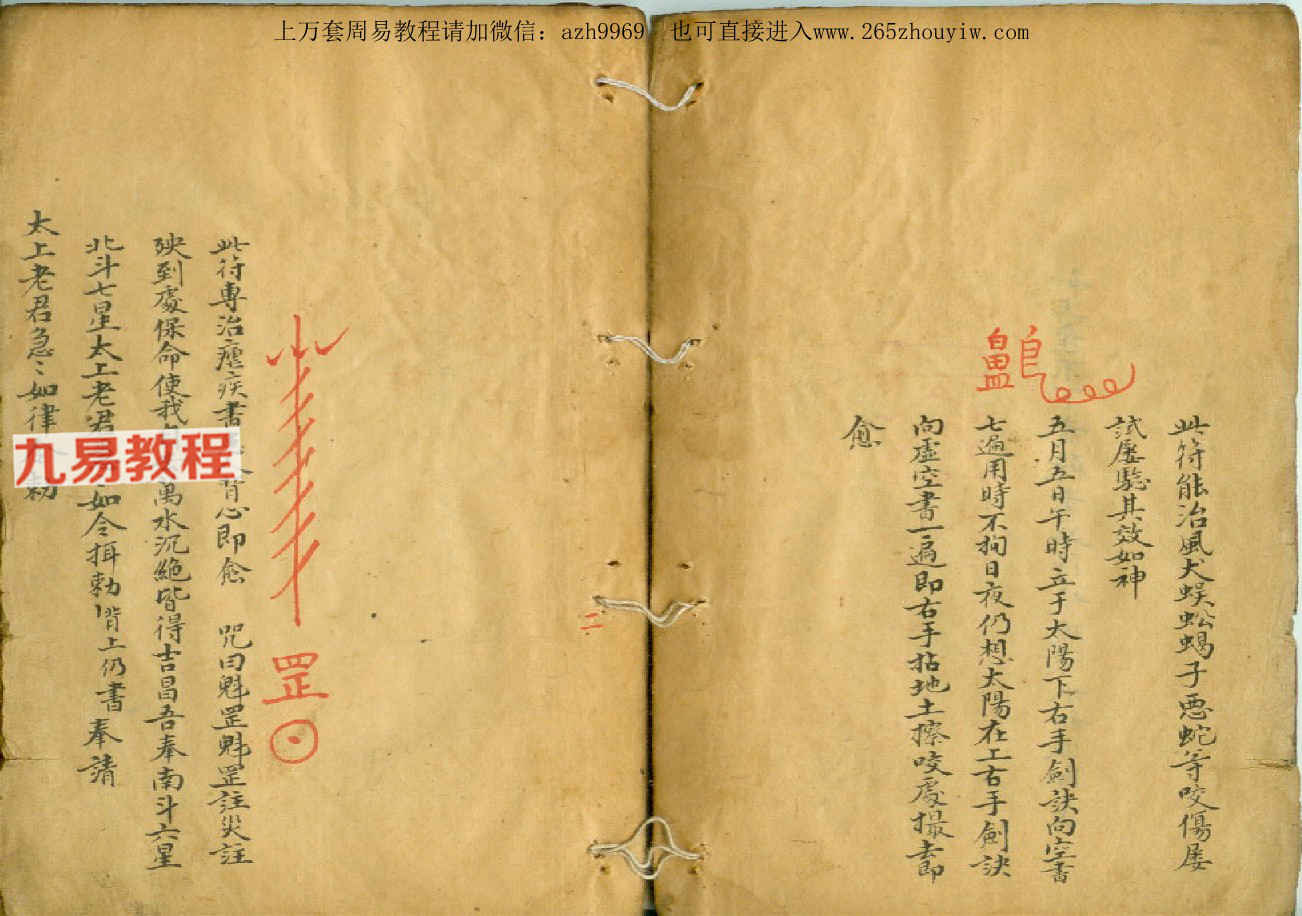 上万套周易教程请加微信：azh9969 也可直接进入www.265zhouyiw.com
此符能治風犬蜈蚣蝎子惡蛇等咬傷屡
試屡驗其效如神
五月五日午時立于太陽下右手劍訣向空書
七遍用時不拘日夜仍想太陽在上右手劍訣
向虛空書一遍即右手拈地土擦咬處撮去即
愈
二
罡
此符專治瘧疾書背心即愈 咒曰魁罡魁罡註災註
殃到處保命使我萬水沉絕皆得吉昌吾奉南斗六星
北斗七星太上老君如令敕背上仍書奉請
太上老君急〻如律敕
九易教程